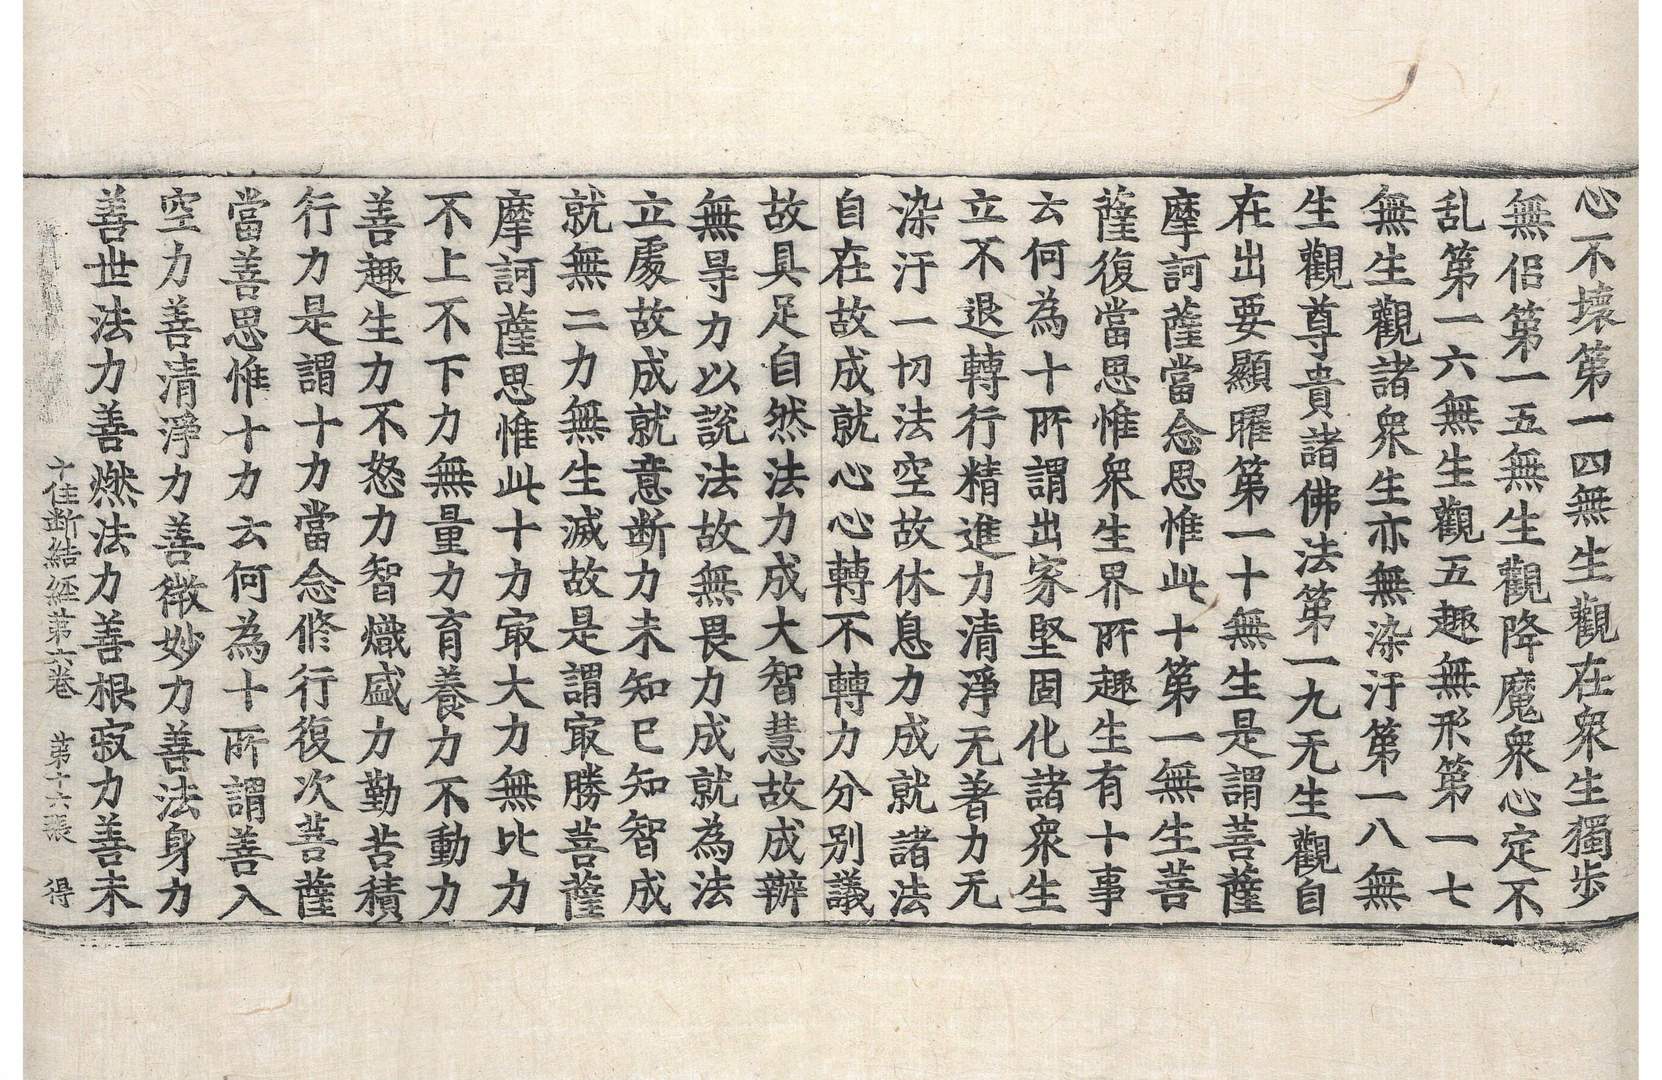 心不壞第一四無生觀在衆生獨步
無侶第一五無生觀降魔衆心定不
乱第一六無生觀五趣無形第一七
無生觀諸衆生亦無染汙第一八無
生觀尊貴諸佛法第一九无生觀自
在出要顯曜第一十無生是謂菩薩
摩訶薩當念思惟此十第一無生菩
薩復當思惟衆生界所趣生有十事
云何為十所謂出家堅固化諸衆生
立不退轉行精進力清淨无著力无
染汙一切法空故休息力成就諸法
自在故成就心心轉不轉力分別議
故具足自然法力成大智慧故成辦
無㝵力以說法故無畏力成就為法
立處故成就意断力未知已知智成
就無二力無生滅故是謂㝡勝菩薩
摩訶薩思惟此十力㝡大力無比力
不上不下力無量力育養力不動力
善趣生力不怒力智熾盛力勤苦積
行力是謂十力當念修行復次菩薩
當善思惟十力云何為十所謂善入
空力善清淨力善微妙力善法身力
善世法力善燃法力善根寂力善未
十住断結經第六卷　第十六張　得